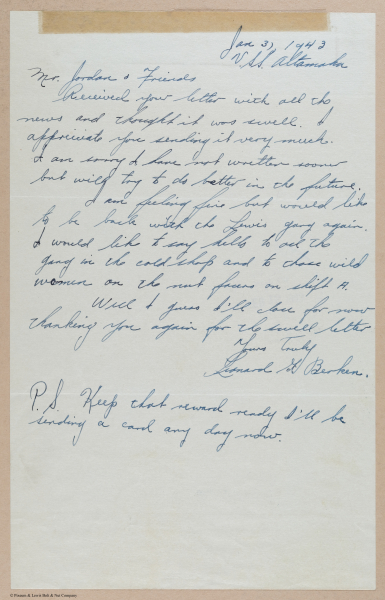 Jan 3, 1943
U.S.S. Altamaha
Mr. Jordan & Friends
Received your letter with all the
news and thought it was swell. I
appriciate you sending it very much.
I am sorry I have not written sooner
but will try to do better in the future.
I am feeling fine but would like
to be back with the Lewis gang again.
I would like to say hello to all the
gang in the cold shop and to those wild
women on the nut facers on shift A.
Well I guess I'll close for now
thanking you again for the swell letter
Yours Truly
Leonard H Berken.
P.S. Keep that reward ready I'll be
sending a card any day now.
© Pioneer & Lewis Bolt & Nut Company